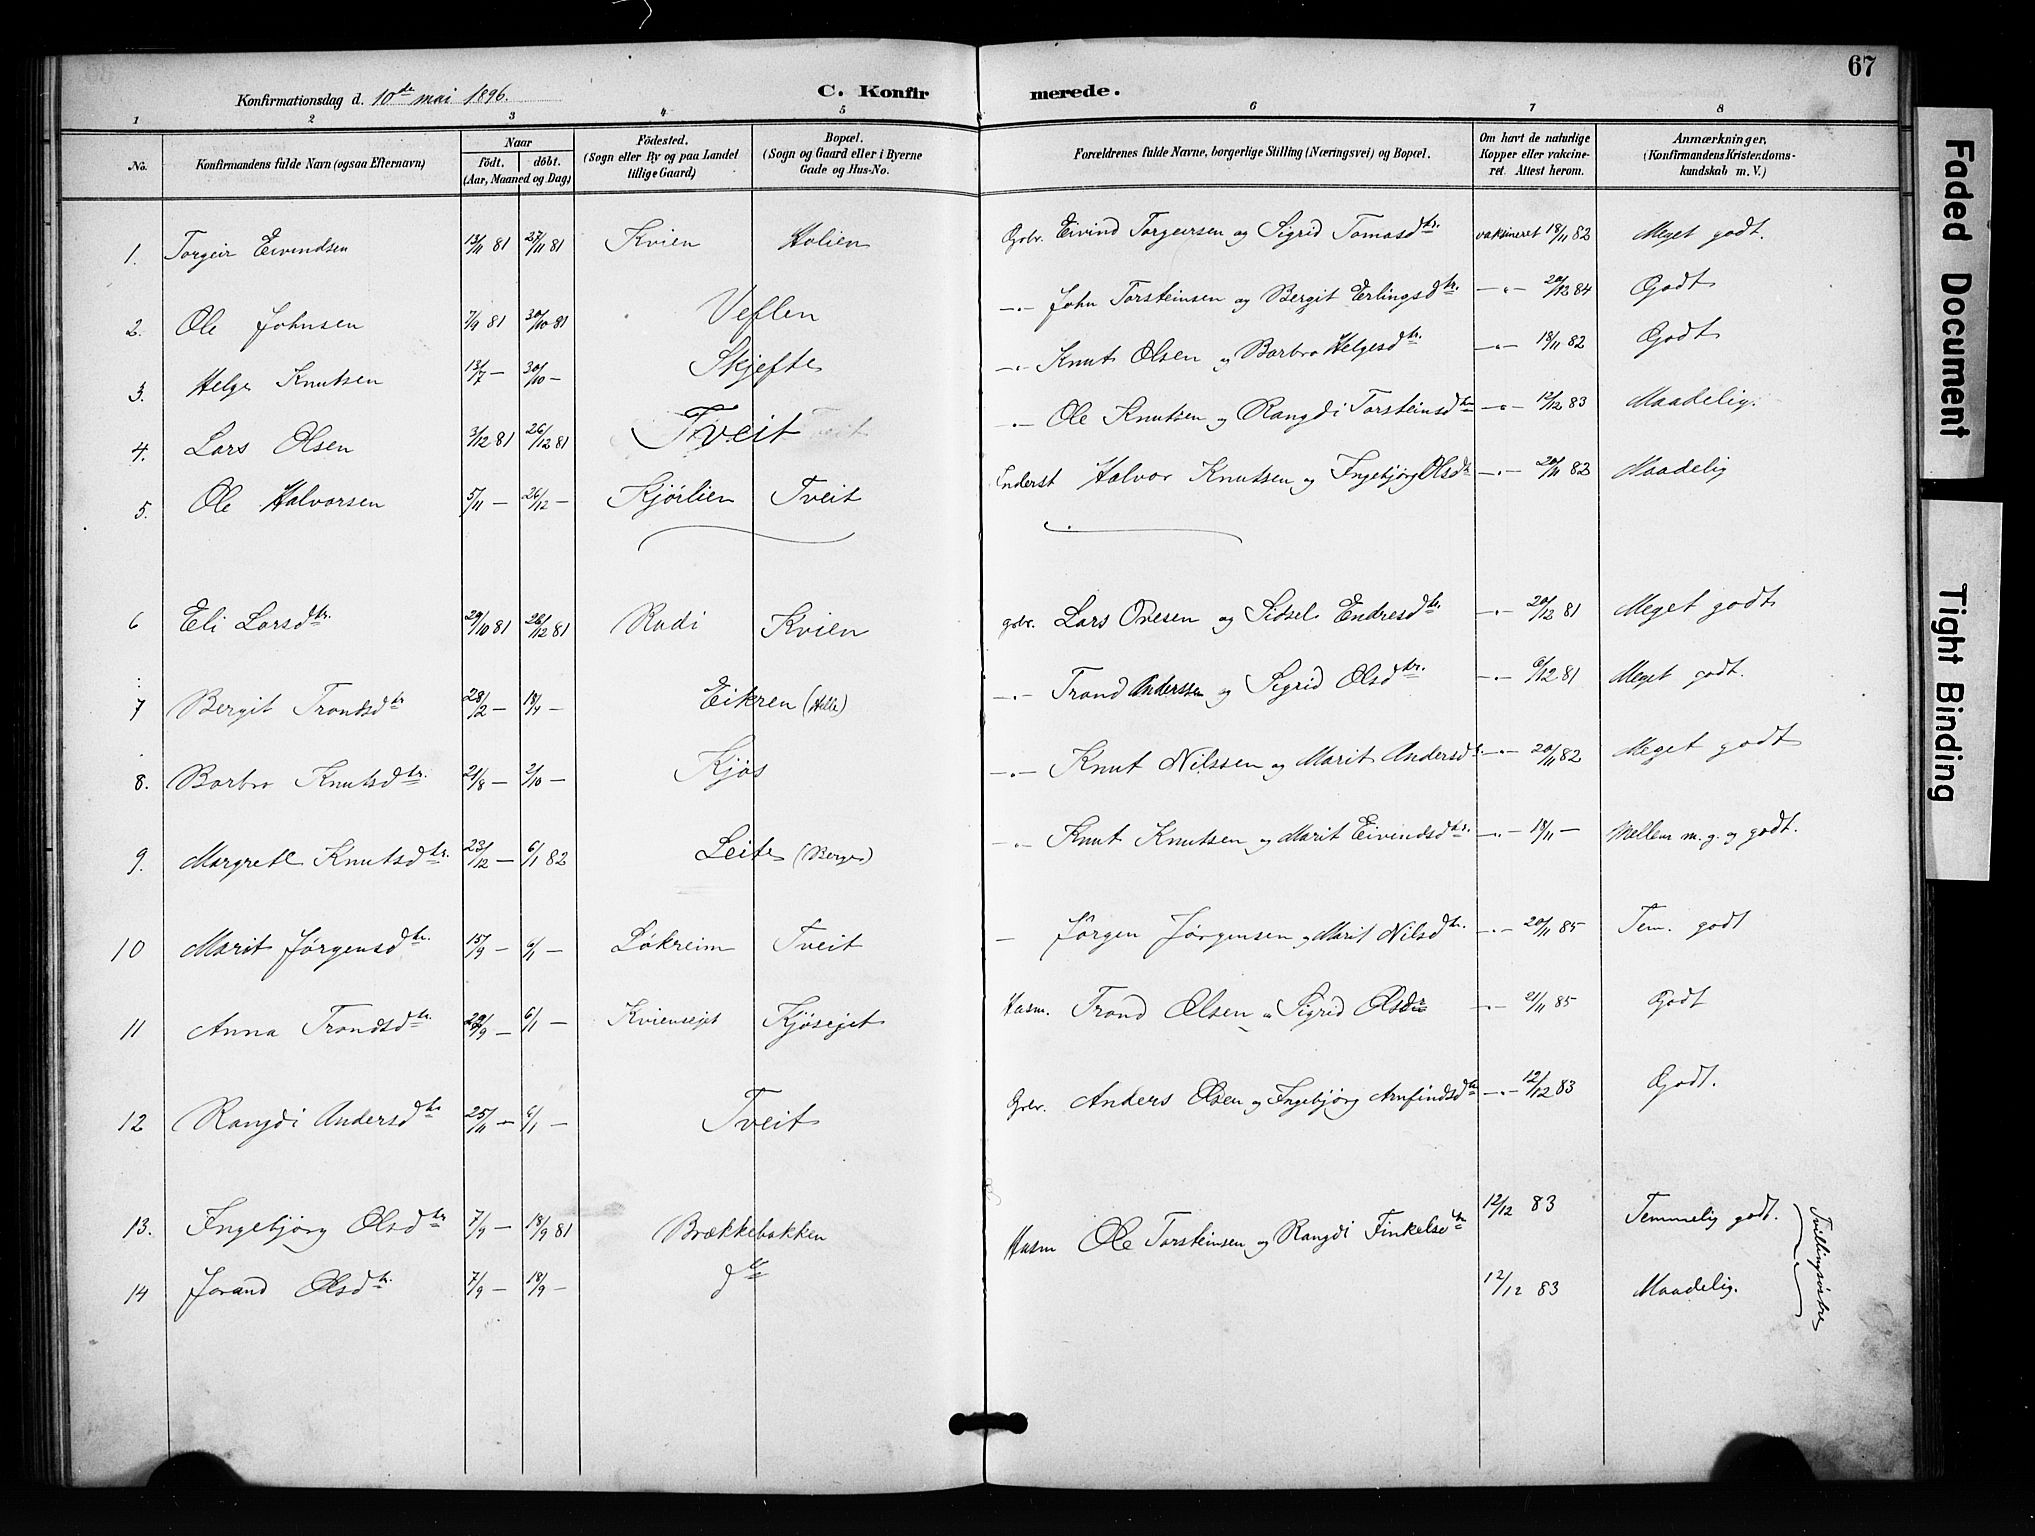 67
Konfirmationsdag d. 10de mai 1896. C. Konfirmerede.
1 2 3 4 5 6 7 8
No. Konfirmandens fulde Navn (ogsaa Efternavn) Naar født. døbt. (Aar, Maaned og Dag) Födested. (Sogn eller By og paa Landet tillige Gaard) Bopæl. (Sogn og Gaard eller i Byerne Gade og Hus-No. Forældrenes fulde Navne, borgerlige Stilling (Næringsvei) og Bopæl. Om havt de naturlige Kopper eller vakcineret. Attest herom. Anmærkninger, (Konfirmandens Kristendomskundskab m. V.)
1. Torgeir Eivendsen 13/11 81 27/11 81 Kvien Holien Gbr. Eivind Torgeirsen og Sigrid Tomasdtr. vaksineret 18/11 82 Meget godt.
2. Ole Johnsen 7/9 81 30/10 81 Veflen -"- John Torsteinsen og Bergit Erlingsdtr. -"- 20/12 84 Godt
3. Helge Knutsen 13/7 - 30/10 - Skjefte -"- Knut Olsen og Barbro Helgesdtr. -"- 18/11 82 Godt
4. Lars Olsen 3/12 81 26/12 81 Tveit -"- Ole Knutsen og Rangdi Torsteinsdtr -"- 12/12 83 Maadelig.
5. Ole Halvorsen 5/11 - 26/12 - Kjørlien Tveit Inderst Halvor Knutsen og Ingebjørg Olsdtr -"- 20/11 82 Maadelig
6 Eli Larsdtr. 29/10 81 26/12 81 Rudi Kvien gbr. Lars Ovesen og Sidsel Endresdtr. -"- 20/12 81 Meget godt
7 Bergit Trondsdtr 28/2 - 18/4 - Eikren (Helle) -"- Trond Anderssen og Sigrid Olsdtr. -"- 6/12 81 Meget godt.
8. Barbro Knutsdtr. 21/8 - 2/10 - Kjøs -"- Knut Nilssen og Marit Andersdtr. -"- 20/11 82 Meget godt
9. Margrete Knutsdtr. 23/12 - 6/1 82 Leite (Berge) -"- Knut Knutsen og Marit Eivendsdtr. -"- 18/11 - Mellem m. g. og godt.
10 Marit Jørgensdtr. 15/9 - 6/1 - Løkreim Tveit - Jørgen Jørgensen og Marit Nilsdtr. -"- 20/11 85 Tem. godt
11 Anna Trondsdtr. 29/9 - 6/1 - Kvienseget Kjøseget Husm. Trond Olsen " Sigrid Olsdtr -"- 21/11 85 Godt
12 Rangdi Andersdtr 25/11 - 6/1 - Tveit Gbr. Anders Olsen og Ingebjørg Arnfindsdtr -"- 12/12 83 Godt.
13. Ingebjørg Olsdtr 7/9 - 18/9 81 Brækkebakken Husm Ole Torsteinsen og Rangdi Finkelsdtr 12/12 83 Temmelig godt.
14 Jorand Olsdtr. 7/9 - 18/9 - do 12/12 83 Maadelig.
Tvillingsøstre
Faded Document
Tight Binding